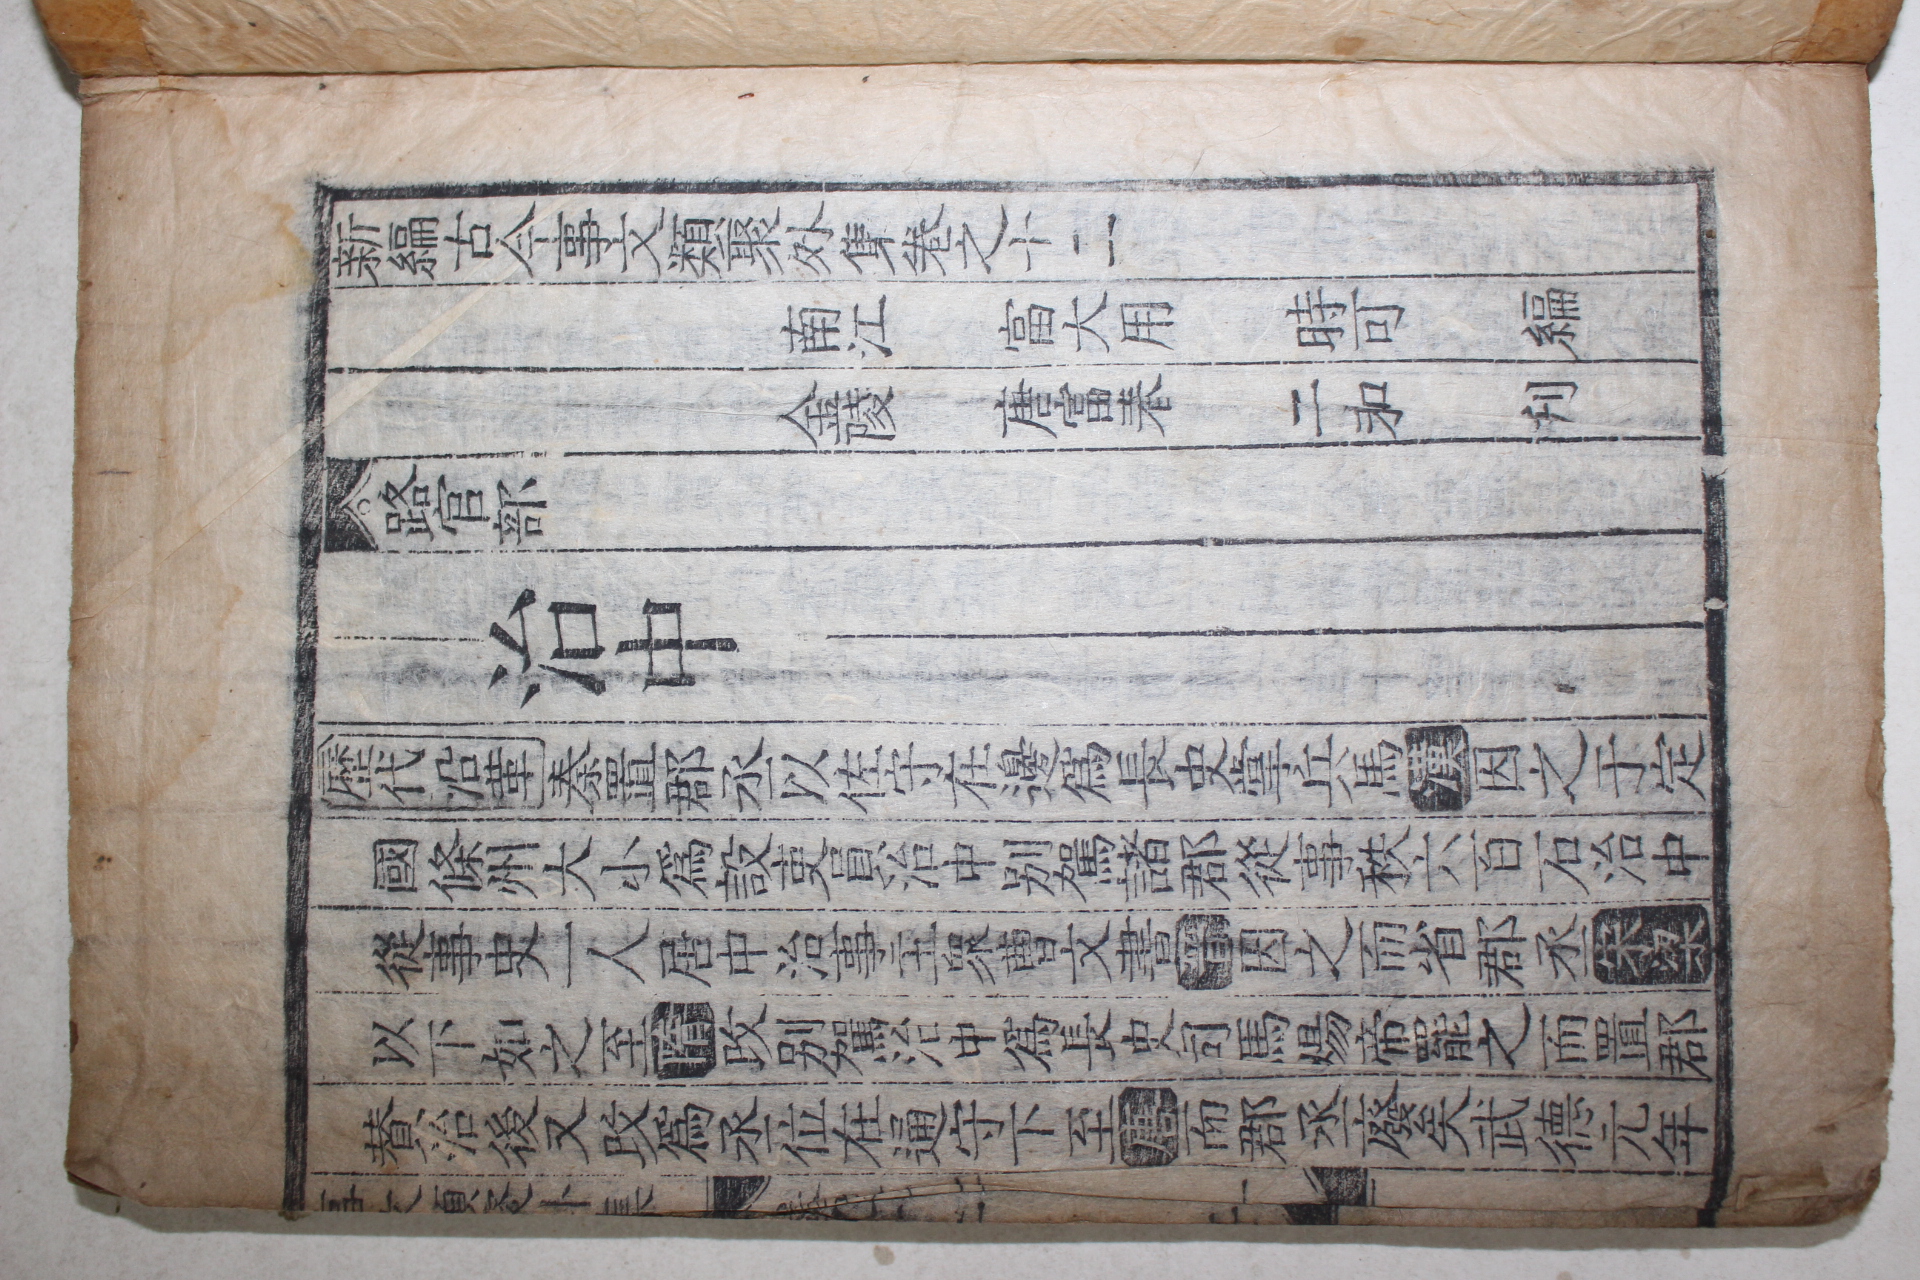 新編古今事文類聚外集卷之十二
南江 富大用 時可 編
金陵 唐富春 子和 刋
路官部
治中
歷代沿革 秦置郡丞以佐守在邊爲長史掌兵馬漢因之于定
國條州大小爲設吏員治中別駕諸郡從事秩六百石治中
從事史一人居中治事主衆曹文書晉因之而省郡丞宋梁
以下如之至隋改別駕治中爲長史司馬煬帝罷之而置郡
賛治後又改爲丞位在通守下至唐而郡丞廢矣武德元年